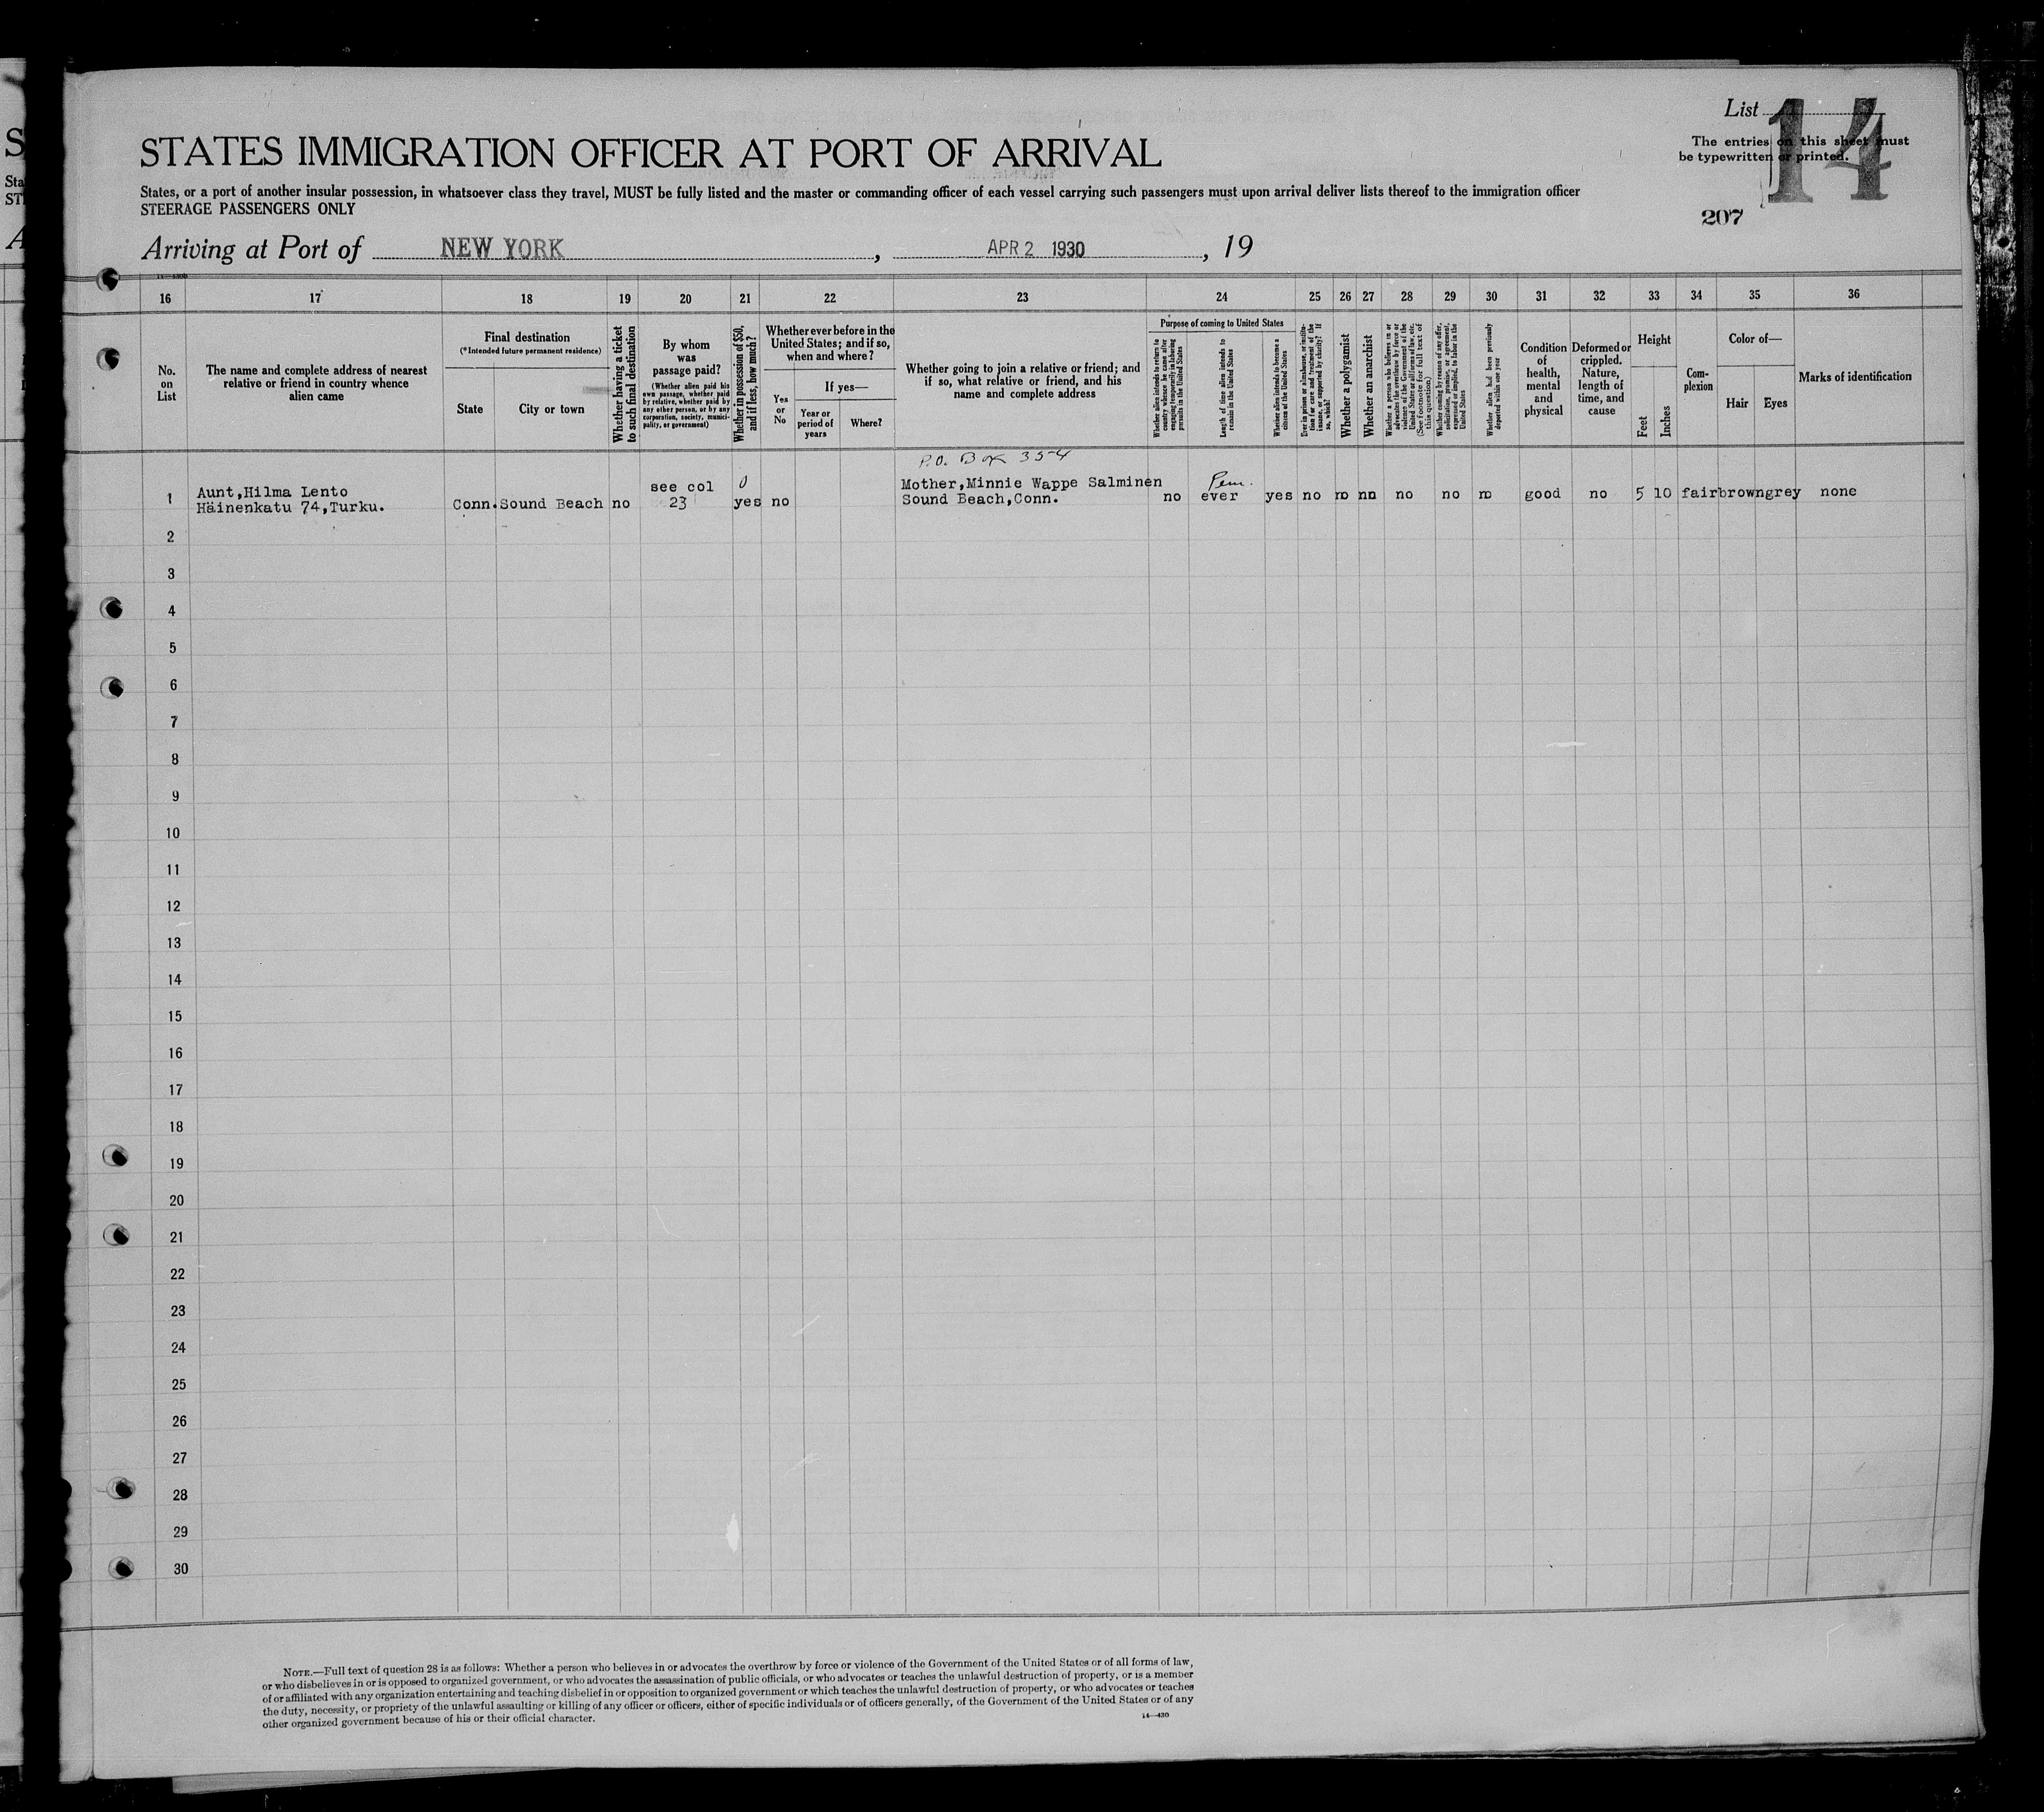 List 14
The entries on this sheet must
be typewritten or printed.
207
STATES IMMIGRATION OFFICER AT PORT OF ARRIVAL
States, or a port of another insular possession, in whatsoever class they travel, MUST be fully listed and the master or commanding officer of each vessel carrying such passengers must upon arrival deliver lists thereof to the immigration officer
STEERAGE PASSENGERS ONLY
Arriving at Port of NEW YORK, APR 2 1930, 19
16 17 18 19 20 21 22 23 24 25 26 27 28 29 30 31 32 33 34 35 36
No.
on
List
The name and complete address of nearest
relative or friend in country whence
alien came
Final destination
(*Intended future permanent residence)
State
City or town
Whether having a ticket
to such final destination
By whom
was
passage paid?
(Whether alien paid his
own passage, whether paid
by relative, whether paid by
any other person, or by any
corporation, society, munici-
pality, or government)
Whether in possession of $50,
and if less, how much?
Whether ever before in the
United States; and if so,
when and where?
If yes—
Yes
or
No
Year or
period of
years
Where?
Whether going to join a relative or friend; and
if so, what relative or friend, and his
name and complete address
Purpose of coming to United States
Whether alien intends to return to
country whence he came after
engaging temporarily in laboring
pursuits in the United States
Length of time alien intends to
remain in the United States
Whether alien intends to become a
citizen of the United States
Ever in prison or almshouse, or institu-
tion for care and treatment of the
insane, or supported by charity? If
so, which?
Whether a polygamist
Whether an anarchist
Whether a person who believes in or
advocates the overthrow by force or
violence of the Government of the
United States or all forms of law, etc.
(See footnote for full text of
this question)
Whether coming by reason of any offer,
solicitation, promise, or agreement,
expressed or implied, to labor in the
United States
Whether alien had been previously
deported within one year
Condition
of
health,
mental
and
physical
Deformed or
crippled.
Nature,
length of
time, and
cause
Height
Feet
Inches
Com-
plexion
Color of—
Hair
Eyes
Marks of identification
P.O. Box 354
see col 0 Mother,Minnie Wappe Salminen Perm.
1 Aunt,Hilma Lento
Häinenkatu 74,Turku. Conn. Sound Beach no 23 yes no Sound Beach,Conn. no ever yes no no no no no no good no 5 10 fair brown grey none
2
3
4
5
6
7
8
9
10
11
12
13
14
15
16
17
18
19
20
21
22
23
24
25
26
27
28
29
30
NOTE.—Full text of question 28 is as follows: Whether a person who believes in or advocates the overthrow by force or violence of the Government of the United States or of all forms of law,
or who disbelieves in or is opposed to organized government, or who advocates the assassination of public officials, or who advocates or teaches the unlawful destruction of property, or is a member
of or affiliated with any organization entertaining and teaching disbelief in or opposition to organized government or which teaches the unlawful destruction of property, or who advocates or teaches
the duty, necessity, or propriety of the unlawful assaulting or killing of any officer or officers, either of specific individuals or of officers generally, of the Government of the United States or of any
other organized government because of his or their official character.
14—430